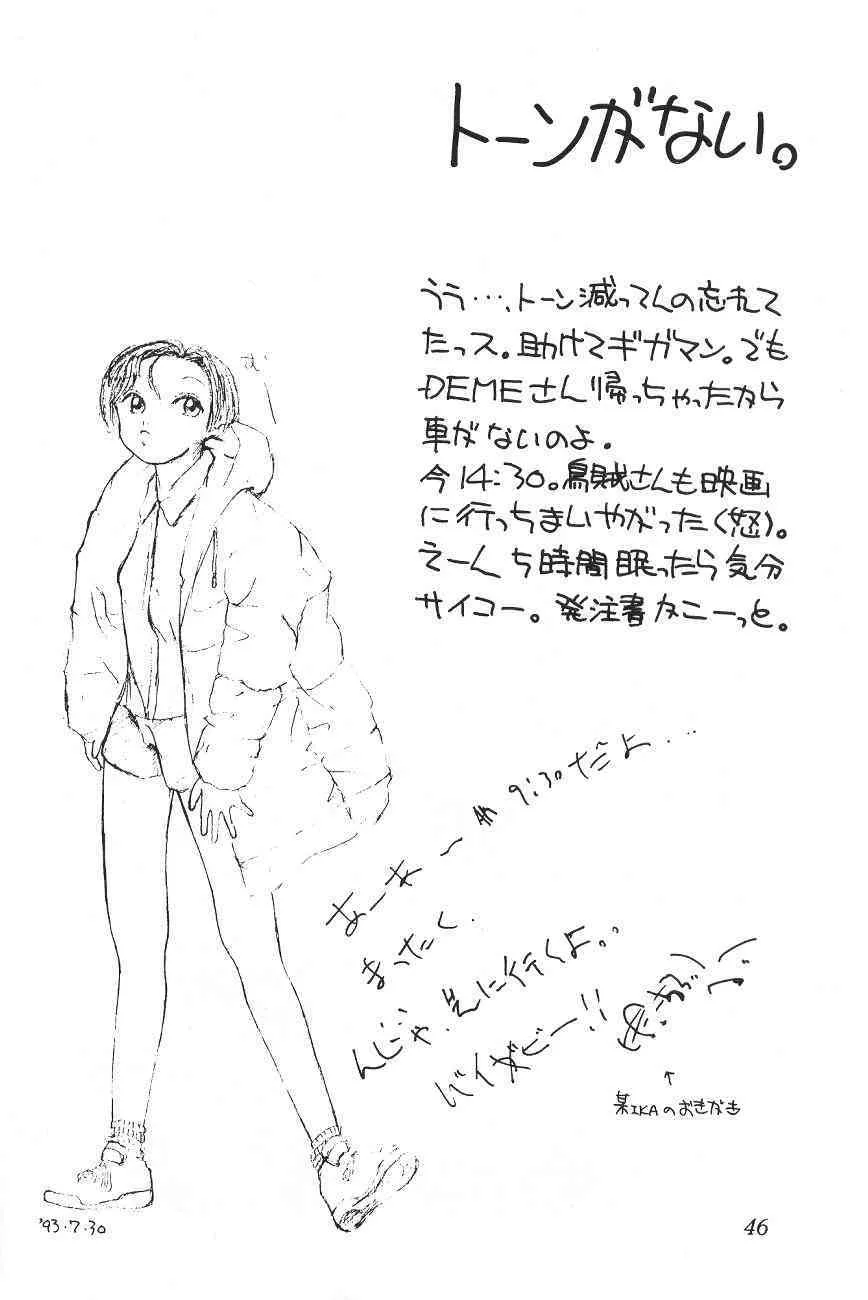 トーンがない。
うう…、トーン減ってんの忘れて
たっス。助けてギガマン。でも
DEMEさん帰っちゃったから
車がないのよ。
今14:30。烏賊さんも映画
に行っちまいやがった(怒)。
えーん ち時間眠ったら気分
サイコー。発注書カこーっと。
む
あーあ 〜 9:30だよ…
まったく.
んじゃ、先に行くよ。
バイダビー!!
↑
某IKAのおきがき
'93・7・30
46